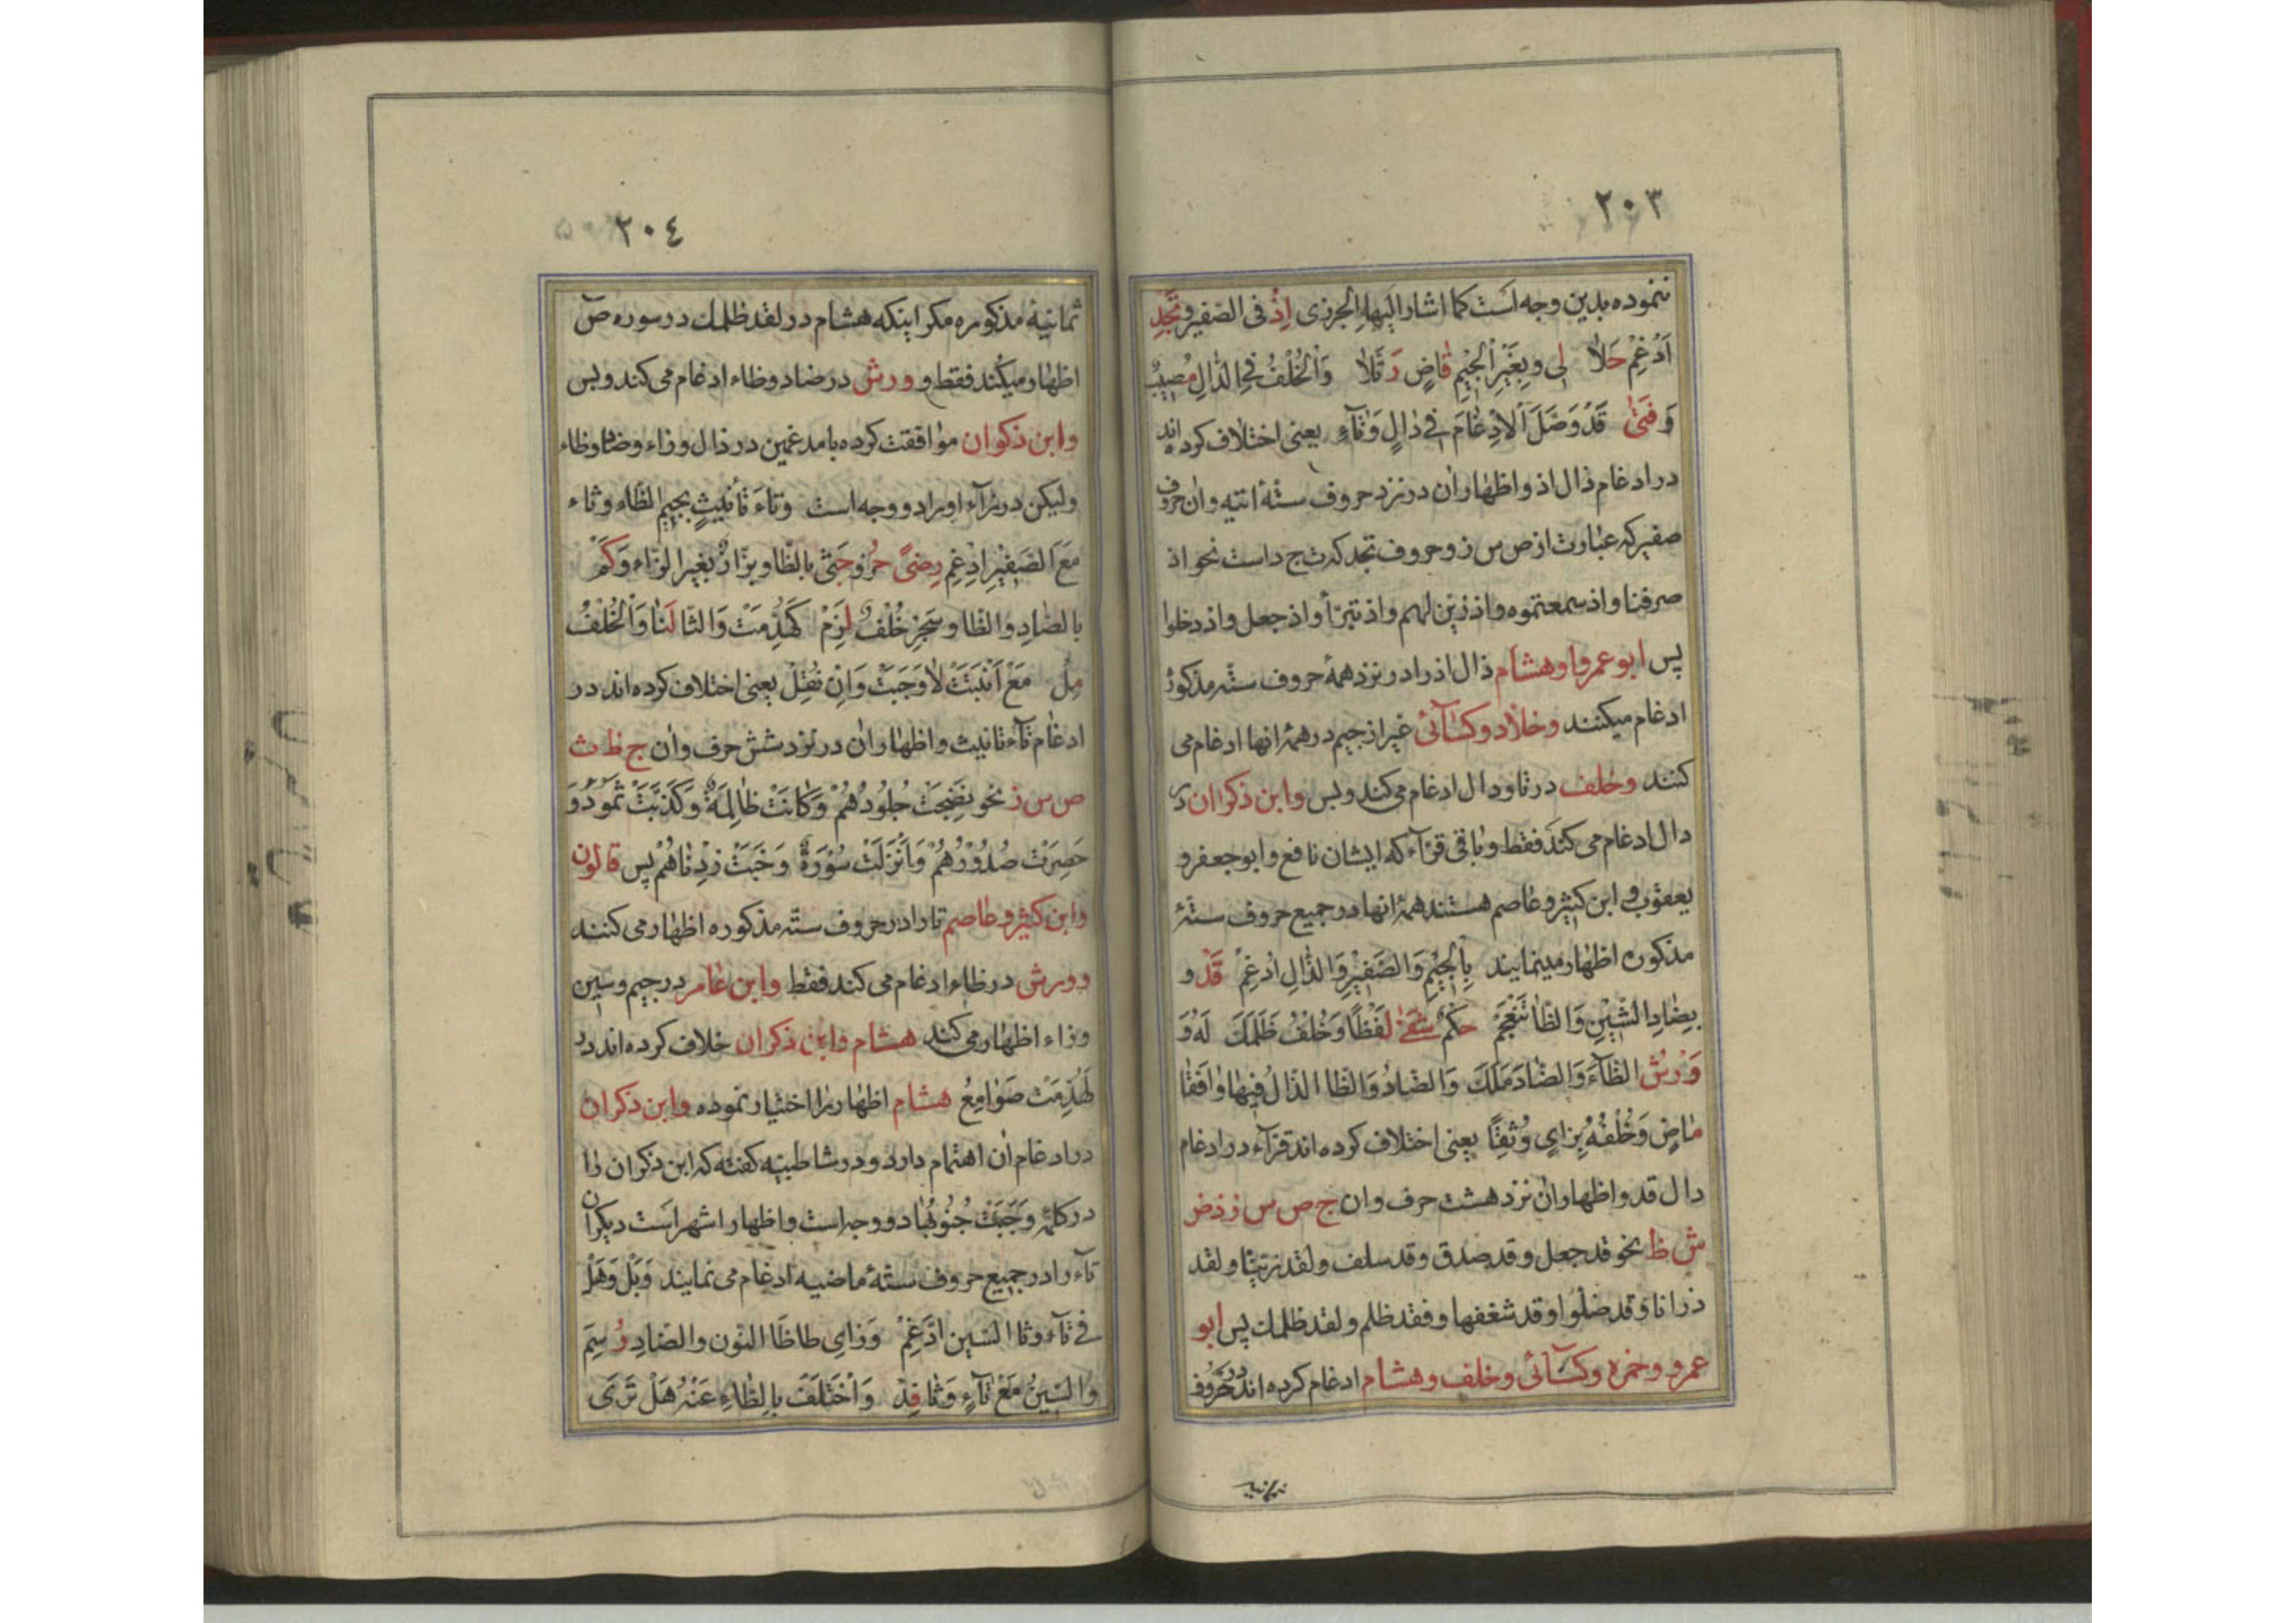 ٢٠٣
ننموده بدین وجه است کما اشار الیها الجزری اِذْ فی الصفیر و تَجِدْ
اَدْغِمْ حَلاٰ لِی وبِغَیْرِ الْجِیْمِ قٰاضٍ رَتَّلاٰ وَالْخُلْفُ فِی الدّٰالِ مُصِیْبٌ
وَفَتیٰ قَدْ وَصَّلَ الاِدْغٰامَ فِی دٰالٍ وَتٰاءٍ یعنی اختلاف کرده اند
در ادغام ذال اذ و اظهار ان در نزد حروف ستّۀ اتیه و ان حروف
صفیر که عبارت از ص س ز و حروف تجد که ت ج د است نحو اذ
صرفنا و اذ سمعتموه و اذ زین لهم و اذ تبرّأ و اذ جعل و اذ دخلوا
پس ابو عمرو و هشام ذال اذ را در نزد همۀ حروف ستّه مذکوره
ادغام میکنند وخلاد وکسآئی غیر از جیم در همۀ انها ادغام می
کنند وخلف در تا و دال ادغام می کند و بس وابن ذکوان در
دال ادغام می کند فقط و باقی قرّآء که ایشان نافع و ابو جعفر و
یعقوب و ابن کثیر و عاصم هستند همۀ انها در جمیع حروف ستّۀ
مذکوره اظهار مینمایند بِالْجِیْمِ وَالصَفِیْرِ وَالذّٰالِ اُدْغِمْ قَدْ و
بِضٰادِ الشِّیْنِ وَالظّٰا تَنْعَجِمْ حُکْمٌ شَفیٰ لَفْظًا وَخُلْفُ ظَلَمَكَ لَهُ وَ
وَرْشٌ الظّآءَ وَالضّٰادَ مَلَكَ وَالضّٰادُ وَالظّٰا الذّالُ فِیهٰا وٰافَقٰا
مٰاضٍ وَخُلْفُهُ بِزٰایٍ وُثِّقٰا یعنی اختلاف کرده اند قرّآء در ادغام
دال قد و اظهار ان نزد هشت حرف و ان ج ص س ز ذ ض
ش ظ نحو قد جعل و قد صدق و قد سلف و لقد زیّنّا و لقد
ذرانا و قد ضلّوا و قد شغفها و فقد ظلم و لقد ظلمك پس ابو
عمرو وحمزه وکسآئی وخلف وهشام ادغام کرده اند در حروف
٢٠٤
ثمانیۀ مذکوره مکر اینکه هشام در لقد ظلمك در سوره صٓ
اظهار میکند فقط و ورش در ضاد و ظاء ادغام می کند و بس
وابن ذکوان موافقت کرده با مدغمین در ذال و زاء و ضاد و ظاء
ولیکن در زآء او را دو وجه است وتاءَ تأنیثٍ بجیمِ الظّاء وثاء
مَعَ الصَفِیْرِ ادْغِم رِضیً حُزْ وجَثیٰ بالظّا وبَزّارٌ بغیر الزّاء وَکَمْ
بالصّادِ والظّا وسَجِزْ خُلْفٌ لَزِمْ کَهُدِّمَتْ وَالثّا لَنٰا وَالْخُلْفُ
مِلْ مَعْ اَنْبَتَتْ لاٰ وَجَبَتْ وَاِنْ نُقِلْ یعنی اختلاف کرده اند در
ادغام تآء تانیث و اظهار ان در نزد شش حرف و ان ج ظ ث
ص س ز نحو نَضِجَتْ جُلُودُهُمْ وَکٰانَتْ ظٰالِمَةً وَکَذَّبَتْ ثَمُودُ وَ
حَصِرَتْ صُدُوْرُهُمْ وَاُنْزِلَتْ سُوْرَةٌ وَخَبَتْ زِدْنٰاهُمْ پس قالون
وابن کثیر وعاصم تا را در حروف ستّه مذکوره اظهار می کنند
وورش در ظاء ادغام می کند فقط وابن عامر در جیم و سین
و زاء اظهار می کند هشام وابن ذکوان خلاف کرده اند در
لَهُدِّمَتْ صَوٰامِعُ هشام اظهار را اختیار نموده وابن ذکوان
در ادغام ان اهتمام دارد و در شاطبیّه کفته که ابن ذکوان را
در کلمۀ وَجَبَتْ جُنُوبُهٰا دو وجه است و اظهار اشهر است دیکران
تآء را در جمیع حروف ستّۀ ماضیه ادغام می نمایند وَبَلْ وَهَلْ
فی تآء وثا السّین ادْغِمْ وَزٰایِ طا ظَا النّون والضّادِ رُسِمْ
والسّینُ مَعْ تآءٍ وَثٰا فِدْ وَاخْتَلَفَ بالِطّاءِ عَنْهُ هَلْ تَرَی